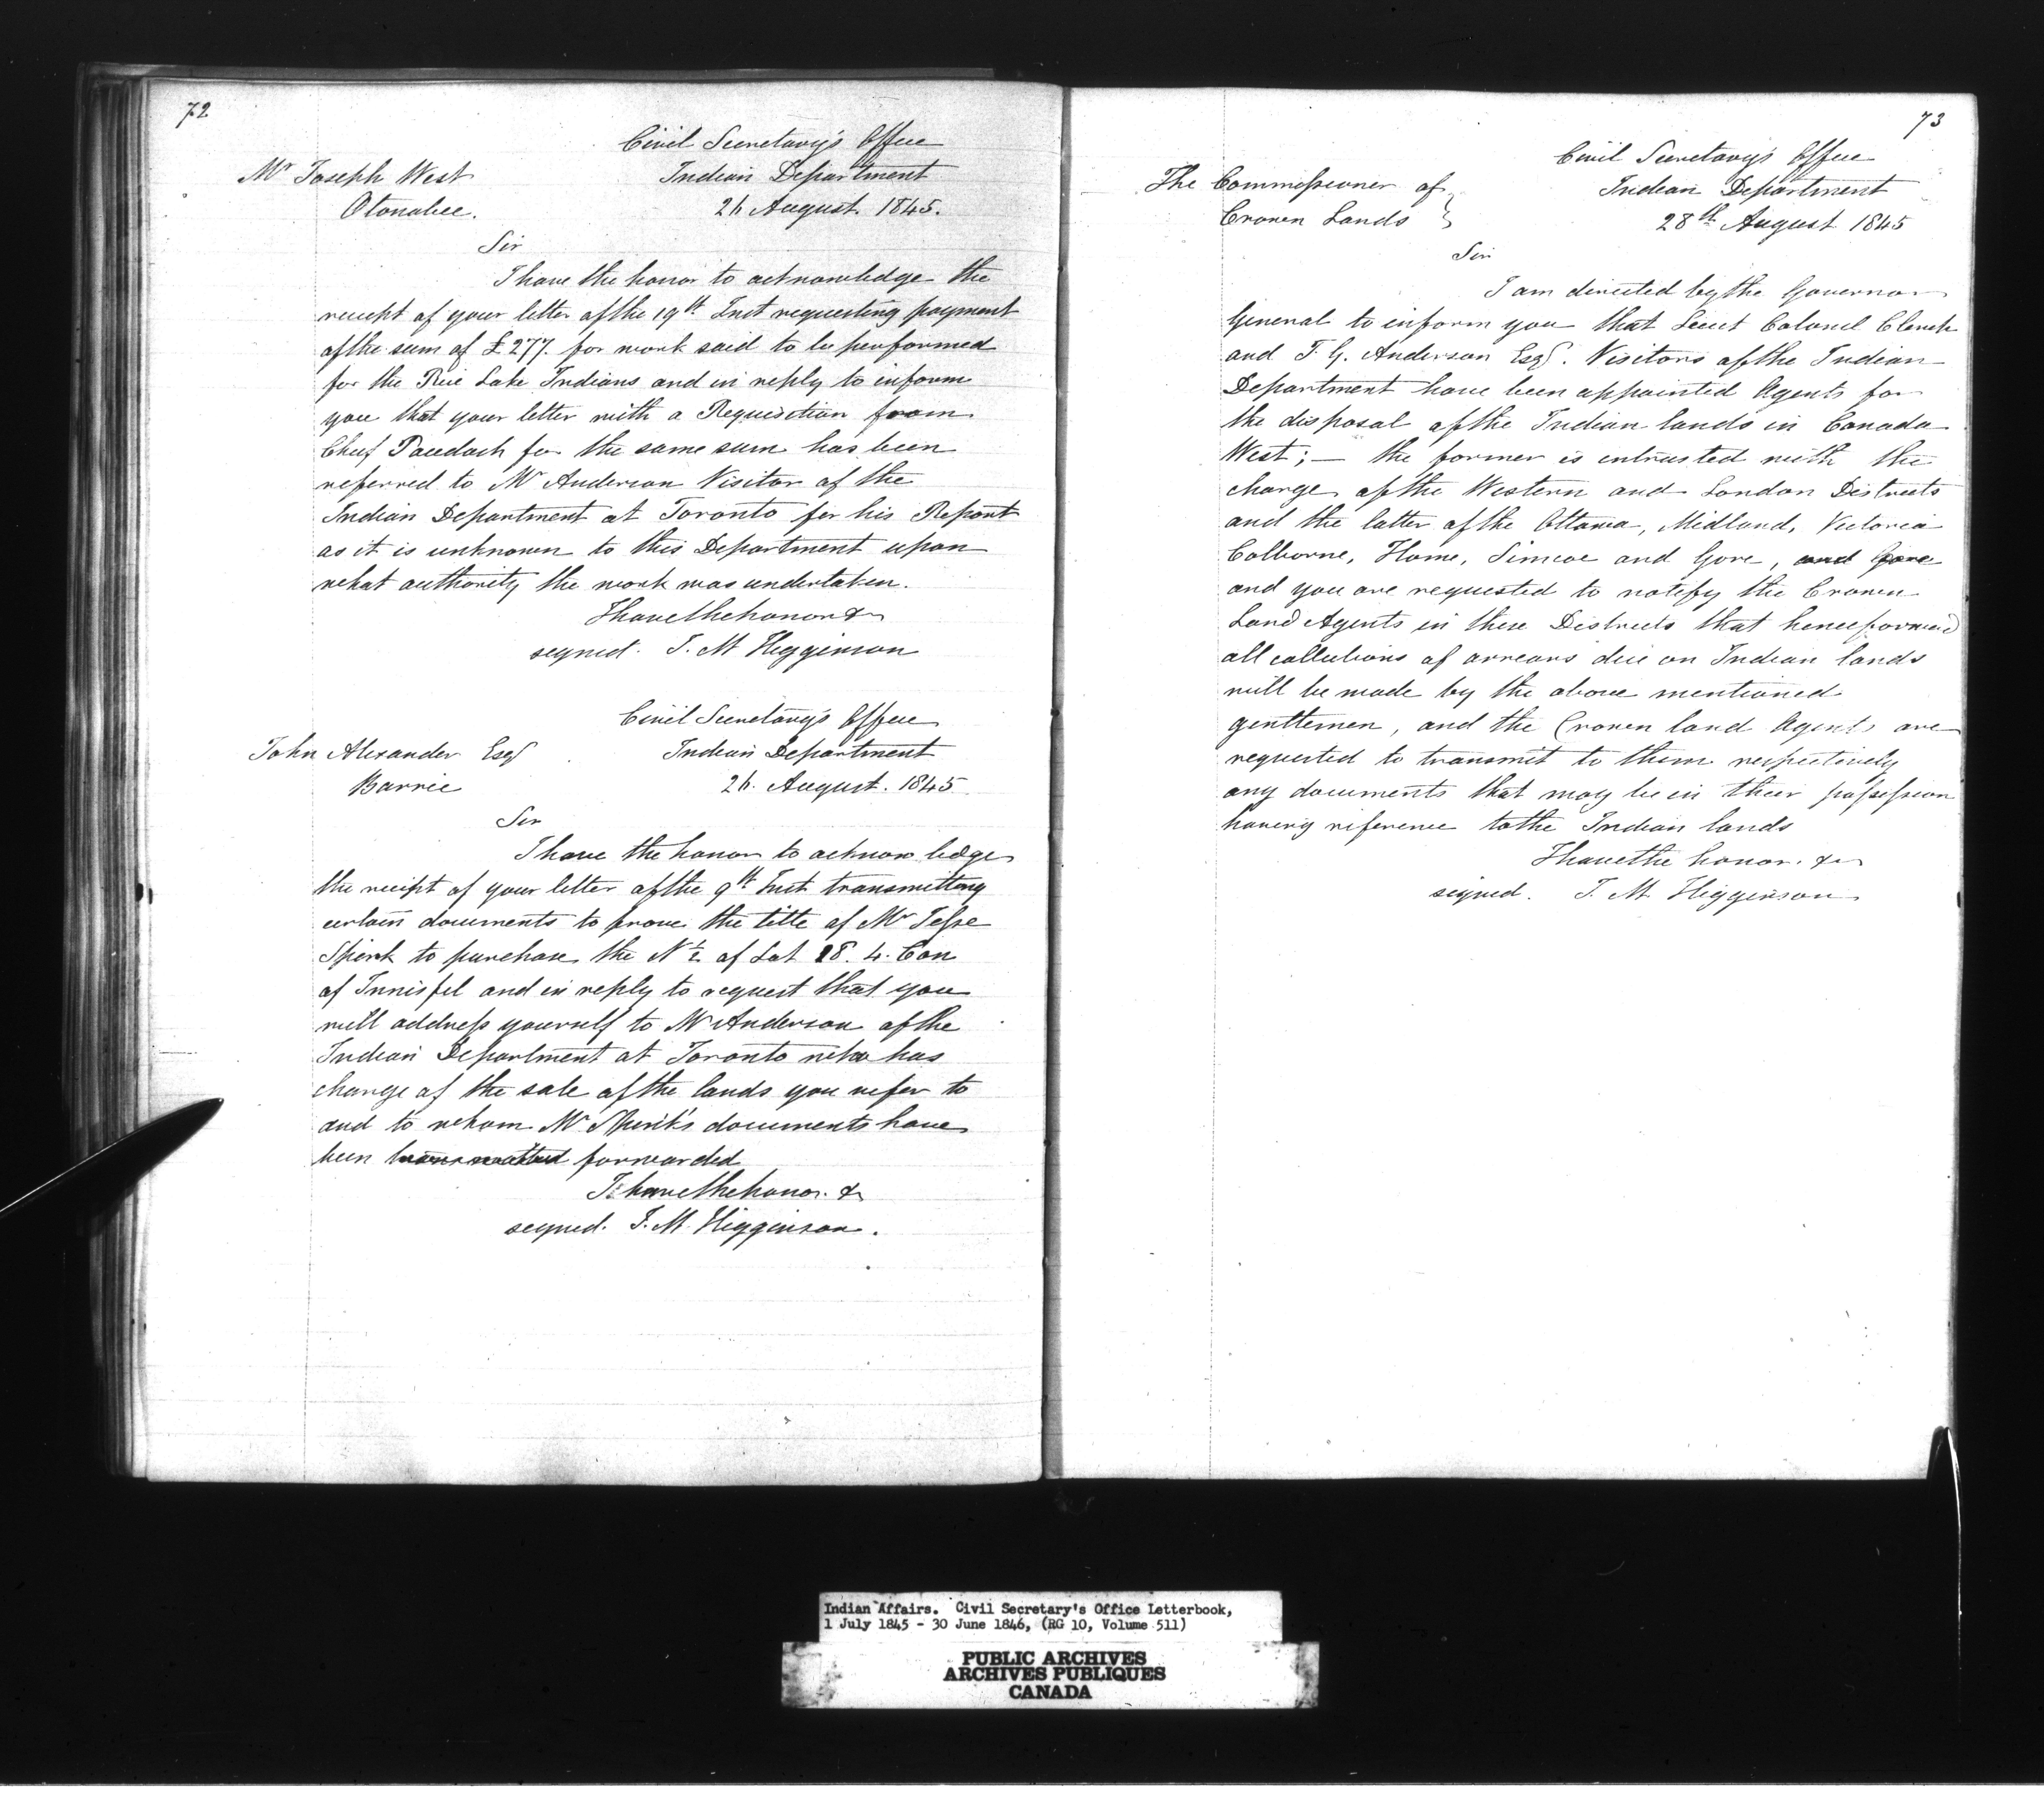 72
Civil Secretary's Office
Mr Joseph West
Indian Department
Otonabee.
26 August 1845.
Sir
I have the honor to acknowledge the
receipt of your letter of the 19th Inst requesting payment
of the sum of £277. for work said to be performed
for the Rice Lake Indians and in reply to inform
you that your letter with a Requisition from
Chief Paudash for the same sum has been
referred to Mr Anderson Visitor of the
Indian Department at Toronto for his Report
as it is unknown to this Department upon
what authority the work was undertaken.
I have the honor &
signed. J. M Higginson
Civil Secretary's Office
John Alexander Esqr
Indian Department
Barrie
26. August. 1845
Sir
I have the honor to acknowledge
the receipt of your letter of the 9th Inst transmitting
certain documents to prove the title of Mr Jesse
Spink to purchase the N ½ of Lot 28. 4. Con
of Innisfil and in reply to request that you
will address yourself to Mr Anderson of the
Indian Department at Toronto who has
charge of the sale of the lands you refer to
and to whom Mr Spink's documents have
been transmitted forwarded
I have the honor. &
signed. J. M. Higginson.
73
Civil Secretary's Office
The Commissioner of
Indian Department
Crown Lands
28th August 1845
Sir
I am directed by the Governor
General to inform you that Lieut Colonel Clench
and T. G. Anderson Esqr. Visitors of the Indian
Department have been appointed Agents for
the disposal of the Indian lands in Canada
West; — the former is entrusted with the
charge of the Western and London Districts
and the latter of the Ottawa, Midland, Victoria
Colborne, Home, Simcoe and Gore, and Gore
and you are requested to notify the Crown
Land Agents in these Districts that henceforward
all collections of arrears due on Indian lands
will be made by the above mentioned
gentlemen, and the Crown land Agents are
requested to transmit to them respectively
any documents that may be in their possession
having reference to the Indian lands
I have the honor. &
signed. J. M. Higginson
Indian Affairs. Civil Secretary's Office Letterbook,
1 July 1845 - 30 June 1846, (RG 10, Volume 511)
PUBLIC ARCHIVES
ARCHIVES PUBLIQUES
CANADA